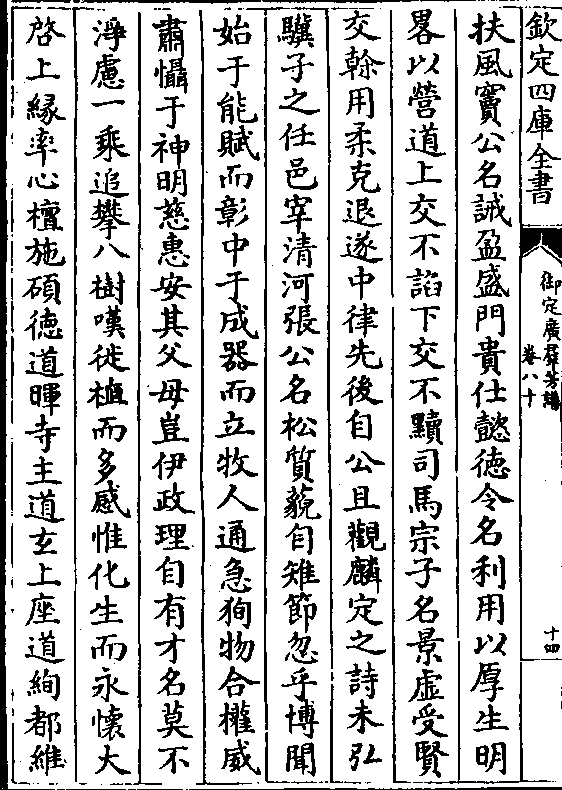 欽定四庫全書
御定廣羣芳譜
卷八十
十四
扶風竇公名誠盈盛門貴仕懿德令名利用以厚生明
畧以營道上交不諂下交不黷司馬宗子名景虛受賢
交榦用柔克退遂中律先後自公且觀麟定之詩未弘
驥子之任邑宰清河張公名松質藐自雉節忽乎博聞
始于能賦而彰中于成器而立牧人通急狥物合權威
肅懾于神明慈惠安其父母豈伊政理自有才名莫不
淨慮一乘追攀八樹嘆徙植而多感惟化生而永懷大
啓上緣率心檀施碩德道暉寺主道玄上座道絢都維